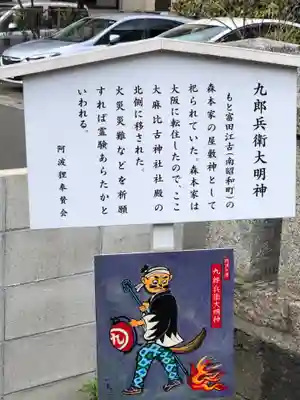 九郎兵衛大明神
もと富田江古(南昭和町)の
森本家の屋敷神として
祀られていた。森本家は
大阪に転住したので、ここ
大麻比古神社社殿の
北側に移された。
火災災難などを祈願
すれば霊験あらたかと
いわれる。
阿波狸奉賛会
九郎兵衛大明神
九